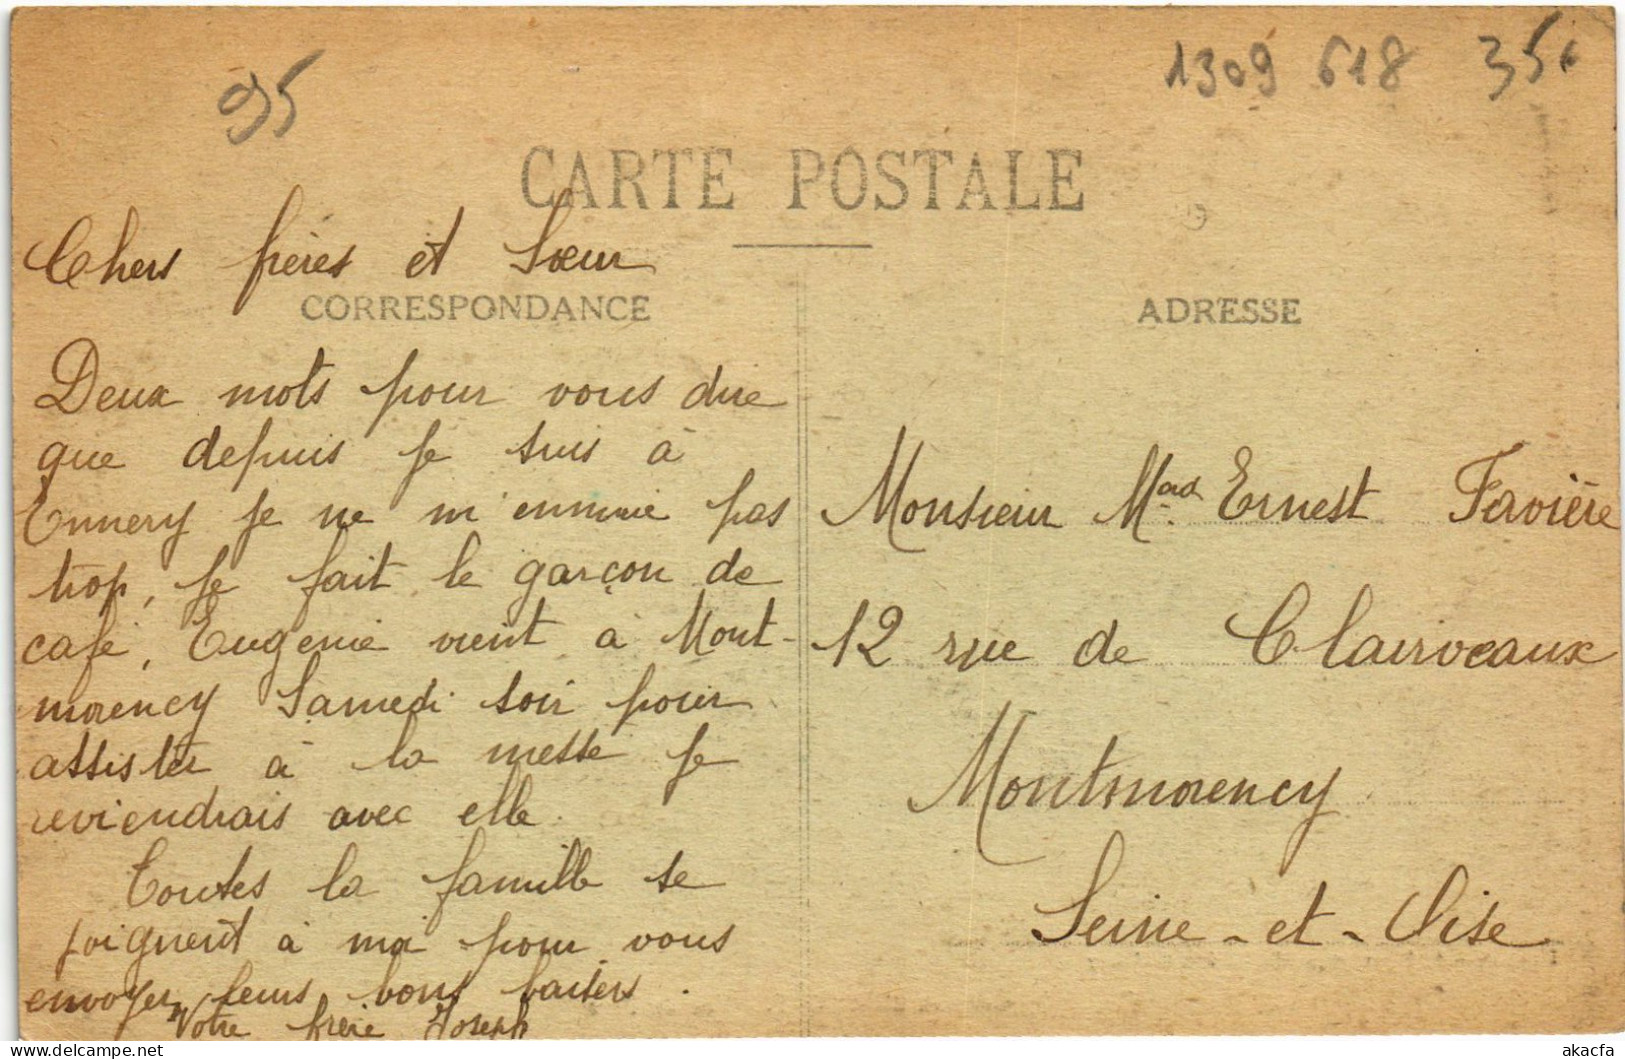 95
1309 618 35c
CARTE POSTALE
Chers frères et Sœur
CORRESPONDANCE
Deux mots pour vous dire
que depuis je suis à
Ennery je ne m'ennuie pas
trop, je fait le garçon de
café, Eugenie vient à Mont-
morency Samedi soir pour
assister à la messe je
reviendrais avec elle.
Toutes la famille se
joignent à ma pour vous
envoyer leurs bons baisers.
Votre frère Joseph
ADRESSE
Monsieur Mad Ernest Favière
12 rue de Clairveaux
Montmorency
Seine-et-Oise
akacfa